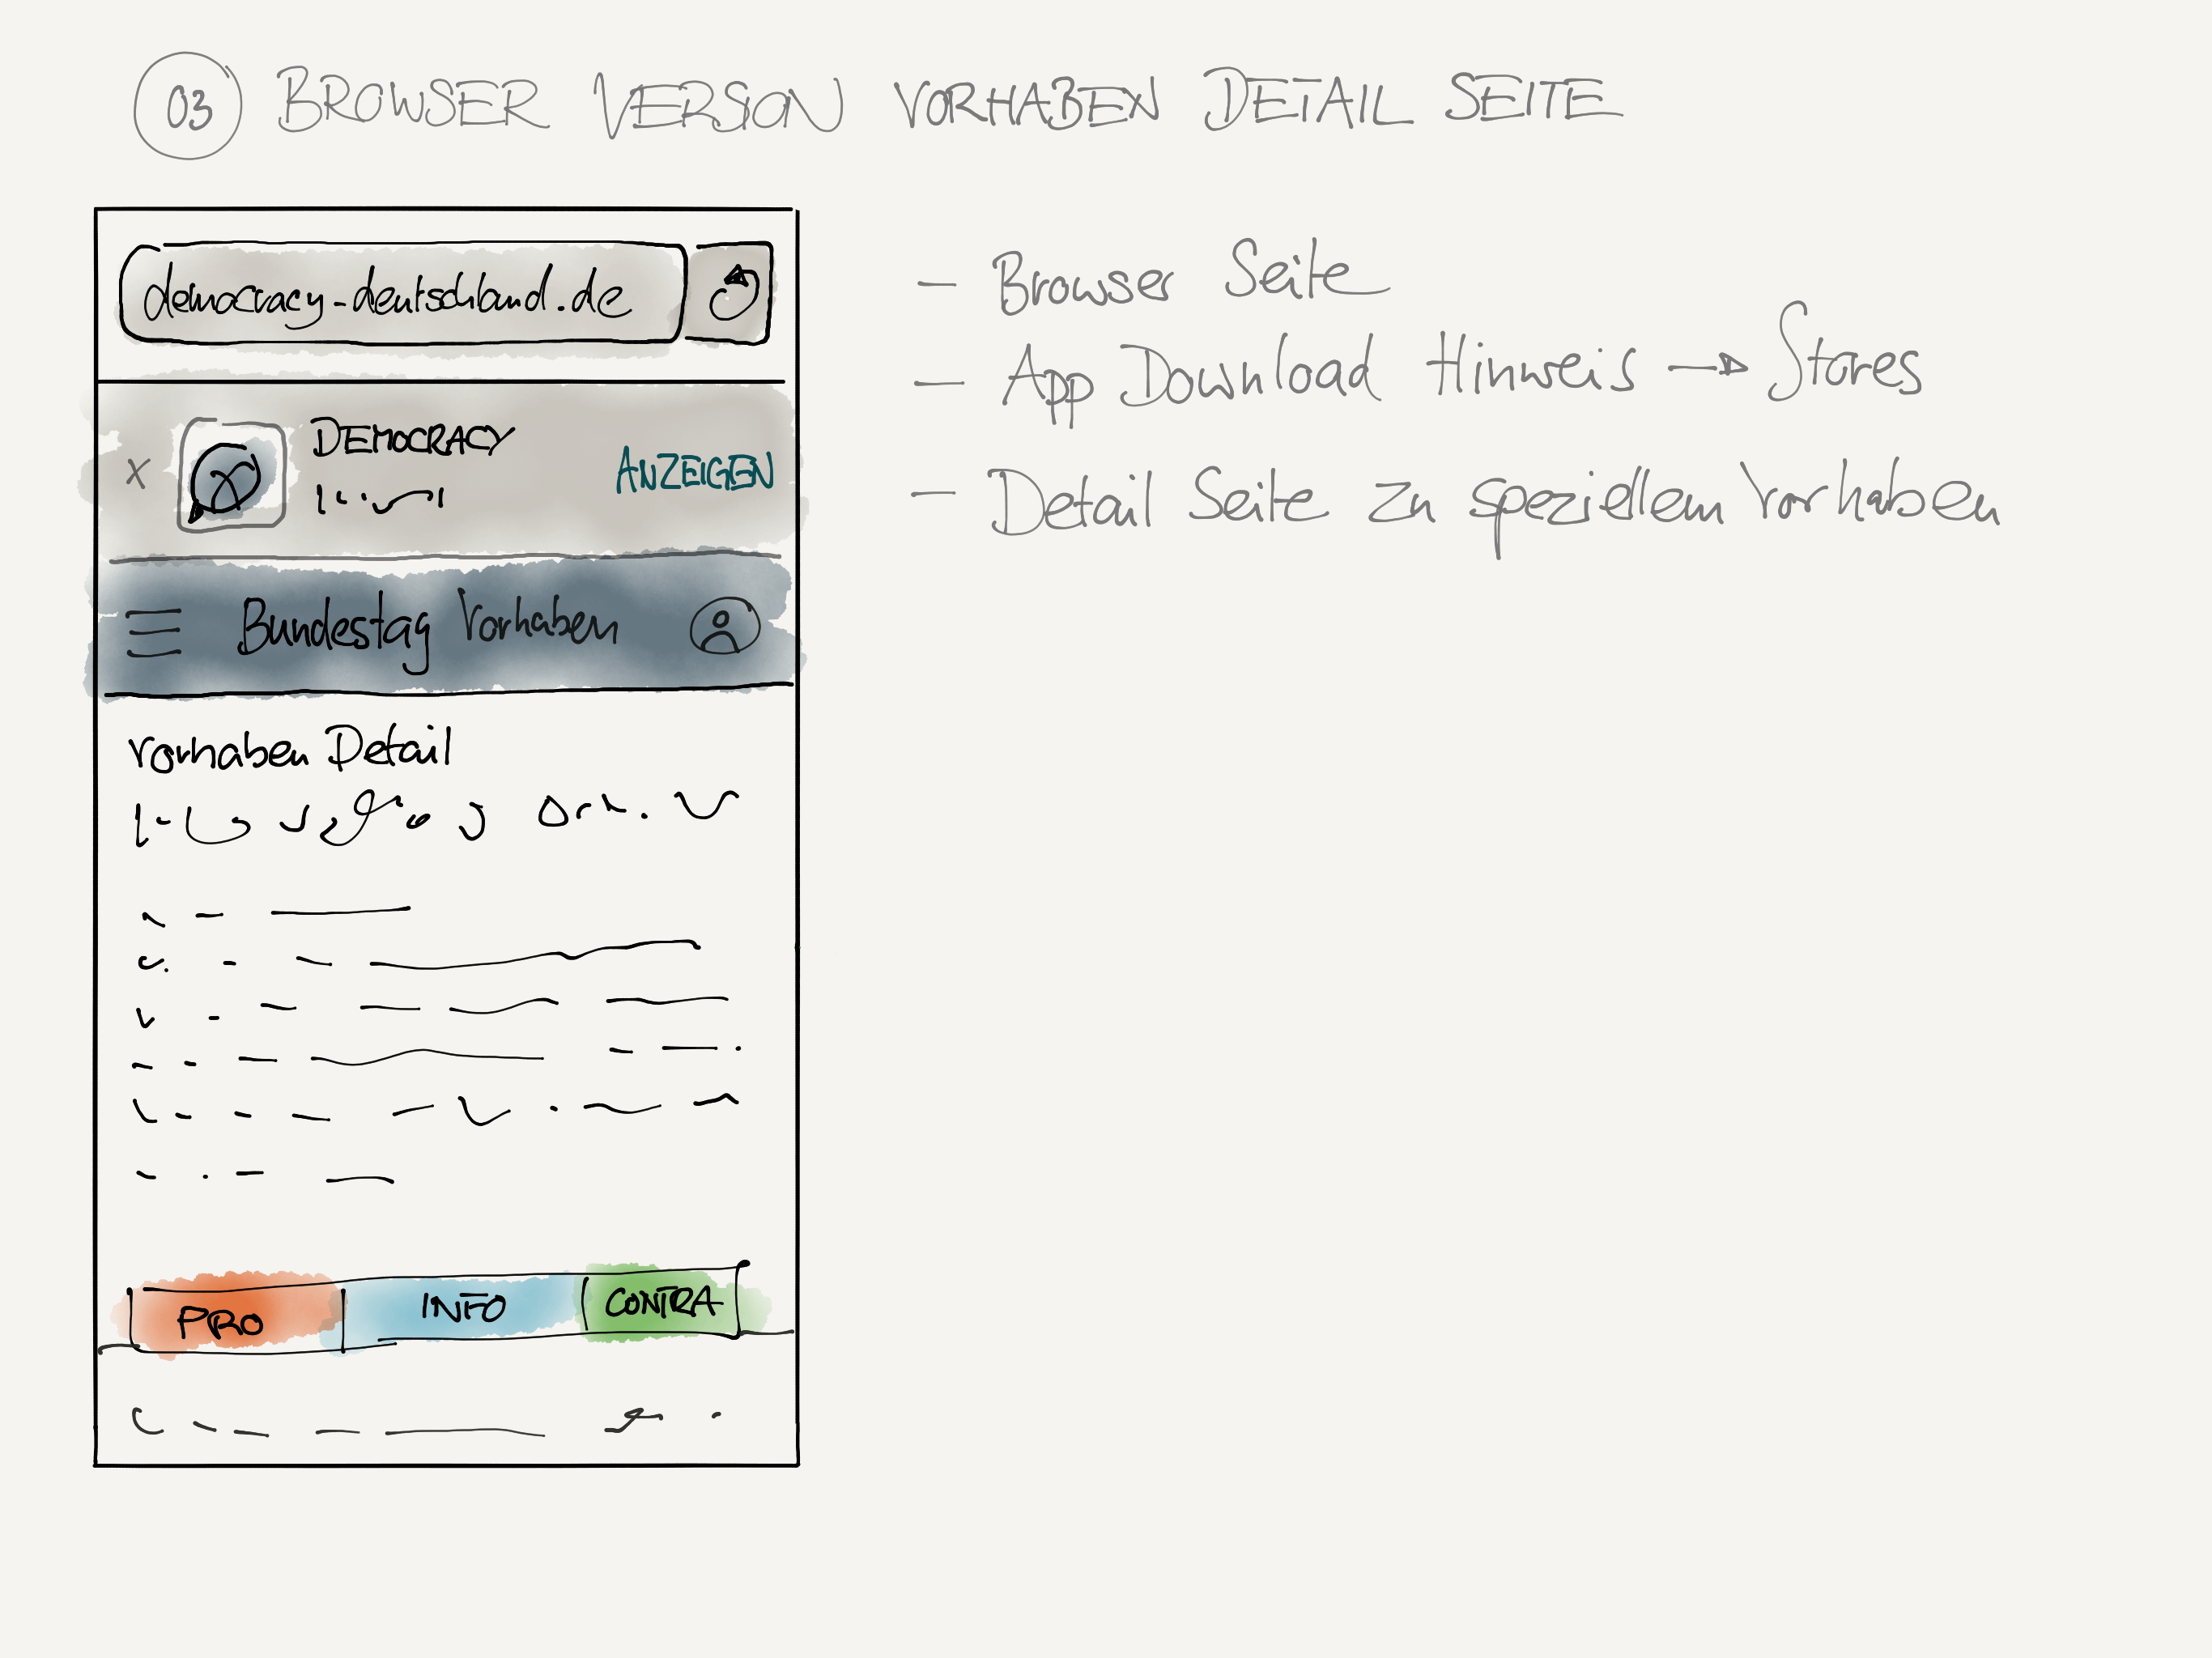 03 BROWSER VERSION VORHABEN DETAIL SEITE
democracy-deutschland.de
X DEMOCRACY ANZEIGEN
Bundestag Vorhaben
Vorhaben Detail
PRO INFO CONTRA
- Browser Seite
- App Download Hinweis → Stores
- Detail Seite zu speziellem Vorhaben